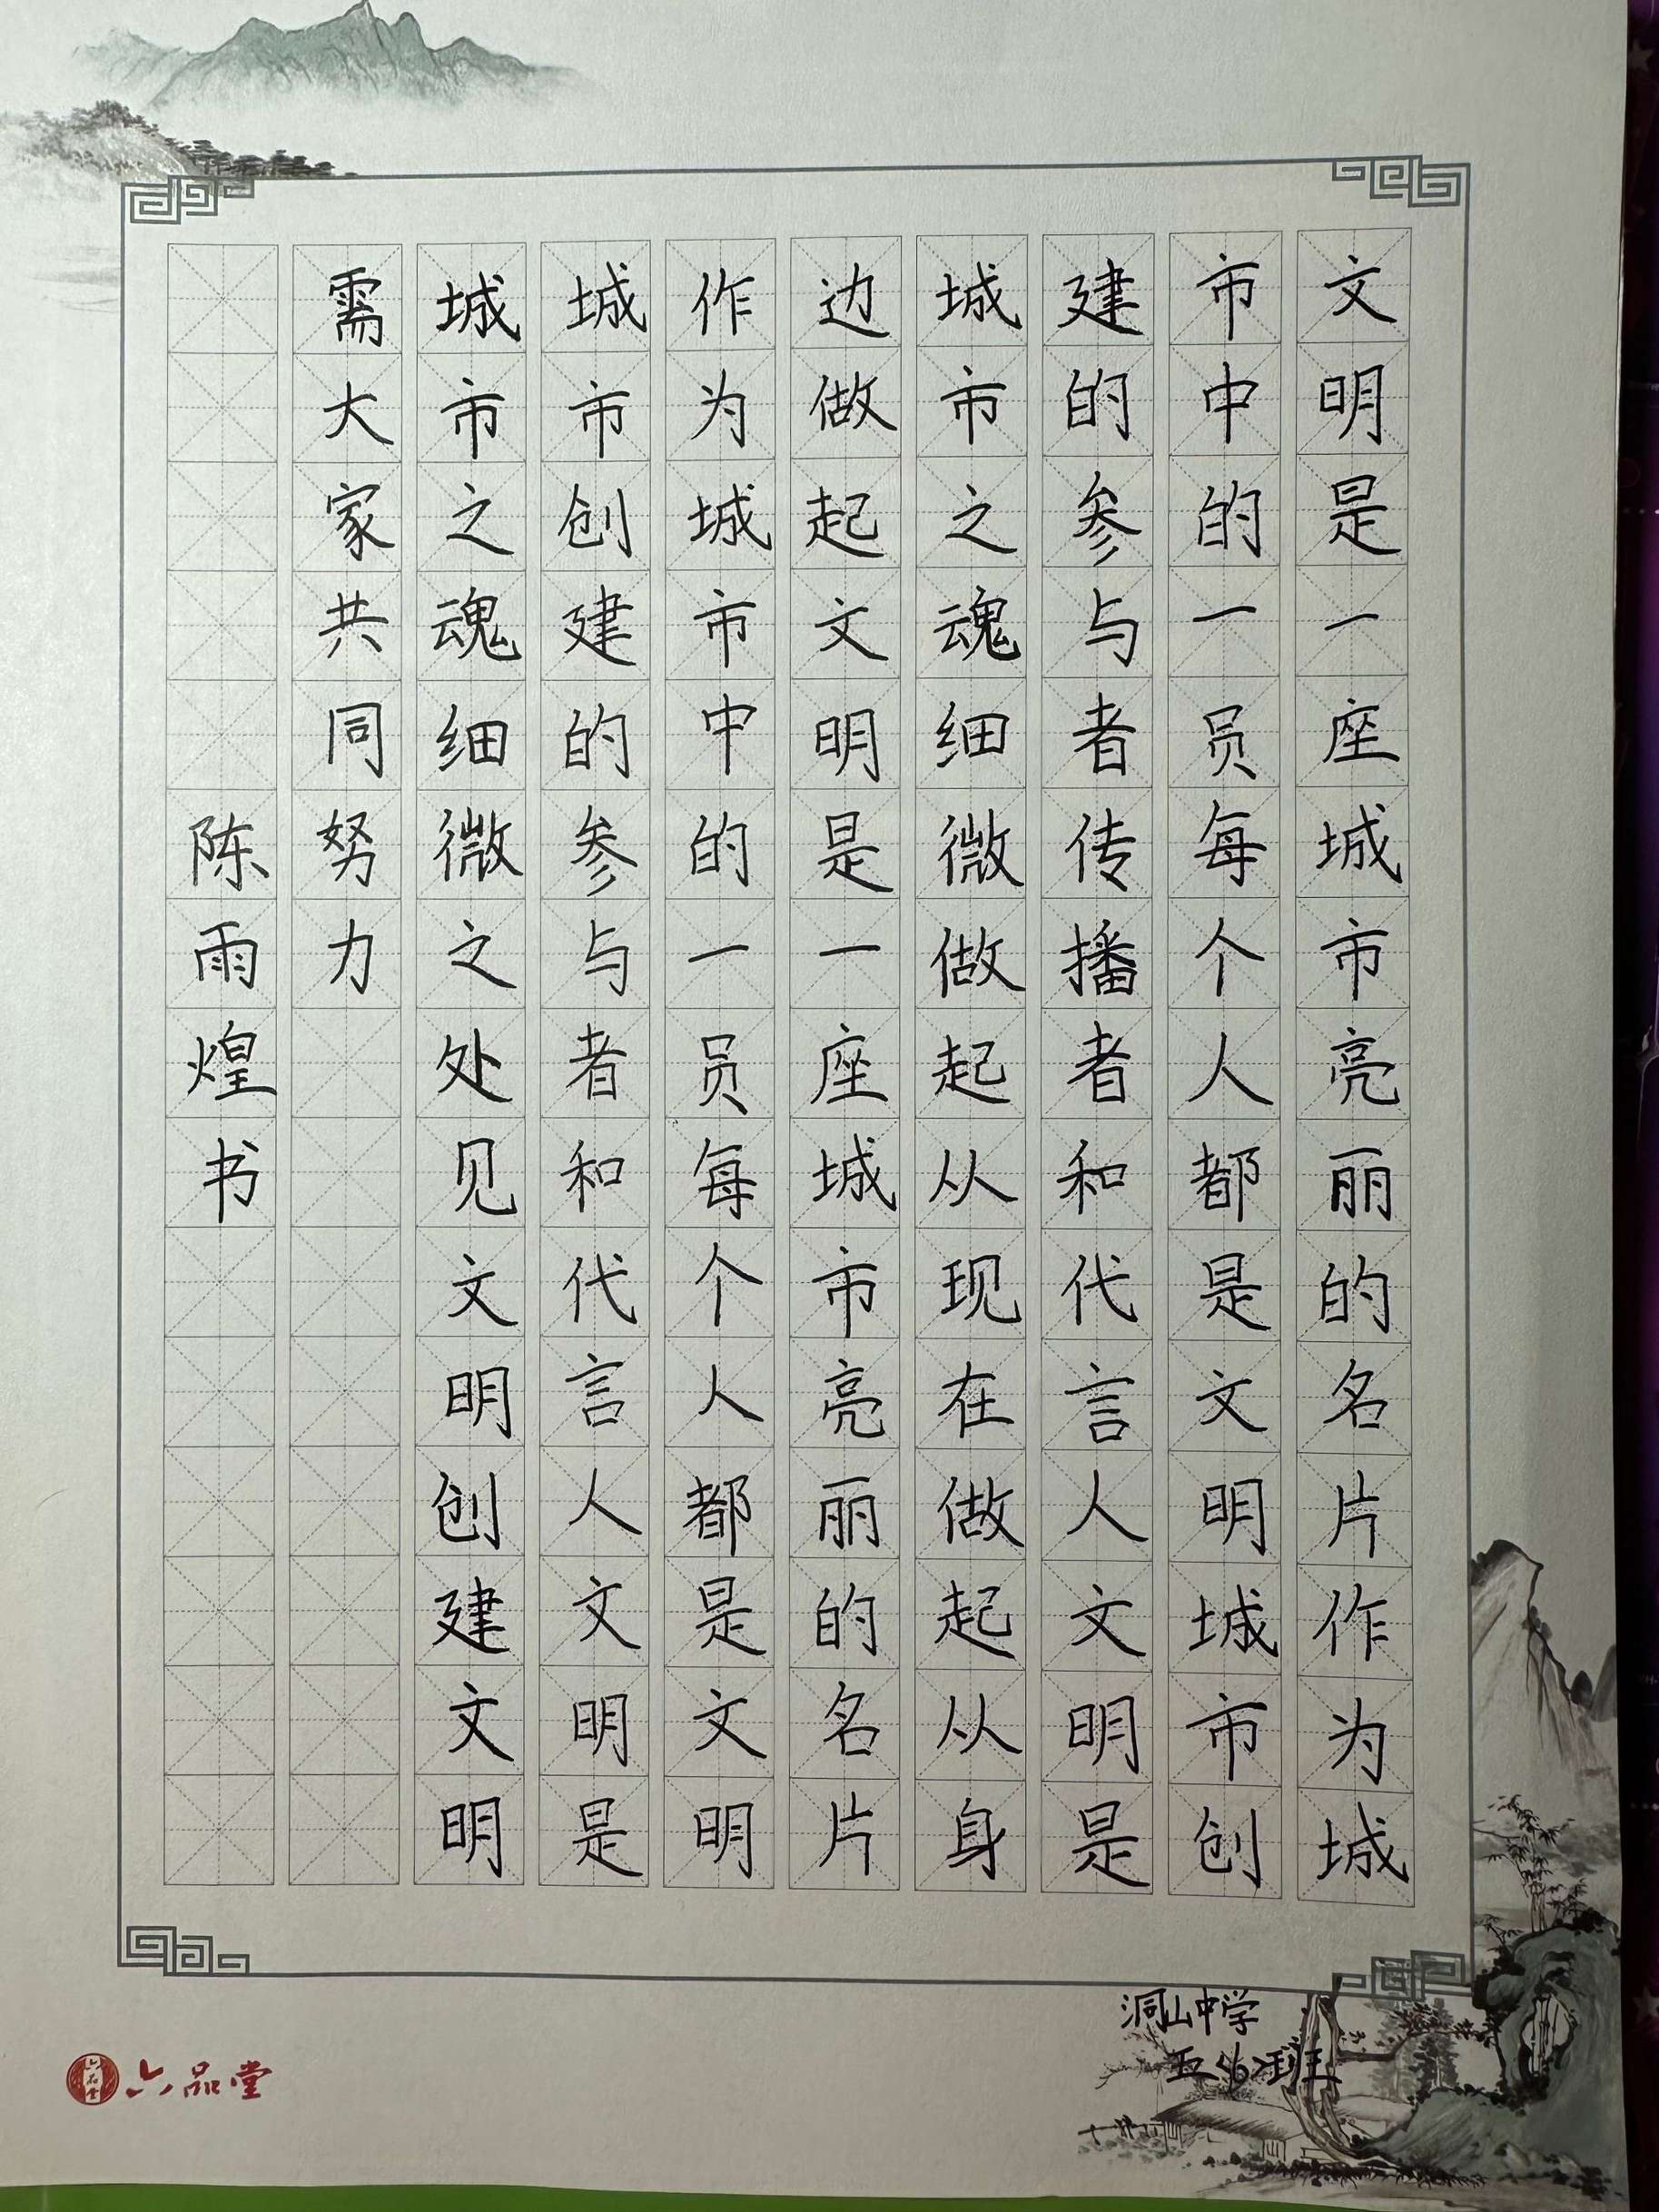 文明是一座城市亮丽的名片作为城
市中的一员每个人都是文明城市创
建的参与者传播者和代言人文明是
城市之魂细微做起从现在做起从身
边做起文明是一座城市亮丽的名片
作为城市中的一员每个人都是文明
城市创建的参与者和代言人文明是
城市之魂细微之处见文明创建文明
需大家共同努力
陈雨煌书
洞山中学
五<6>班
六品堂
六品堂